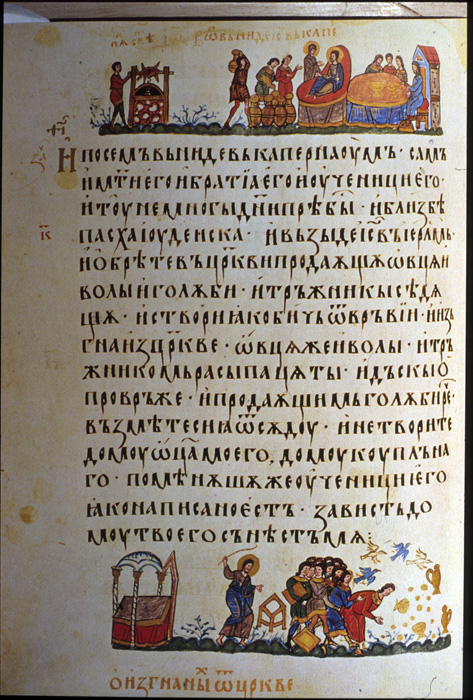 вьниде іс вь капе
И по семъ въниде въ капернаоумъ · самъ
и мт҃и его и братїа его и оученици его ·
и тоу не многы дн҃и прѣбы · и близ бѣ
к҃
пасха іоудеиска · и възыде іс҃ въ іерл҃мъ ·
и обрѣте въ цр҃кви продаѫщѧѧ овцѧ и
волы и голѫби · и тръжникы сѣдѧ
щѧ · и створи ꙗко бичь ѿ връвїи · и изь
гна из цр҃кве · ѡвцѧ же и волы · и тръ
жникомь расыпа цѧты · и дъскы ѡ
провръже · и продаѫщимь голѫби ре҇ ·
възмѣте сиа ѿсѫдоу · и не творите
домоу ѡц҃а моего, домоу коуплъна
го · помѣнѫшѧ же оученици его
ꙗко написано естъ · зависть до
моу твоего сънѣстъ мѧ :
о изгнаныⷯ ѿ цр҃кве